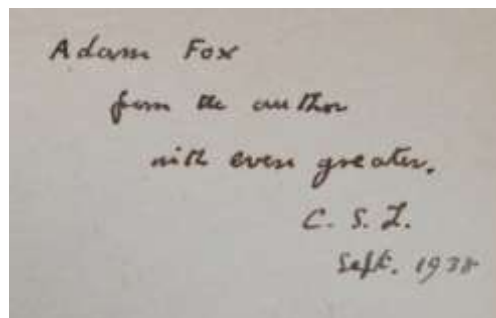 Adam Fox
from the author
with even greater.
C. S. L.
Sept. 1938